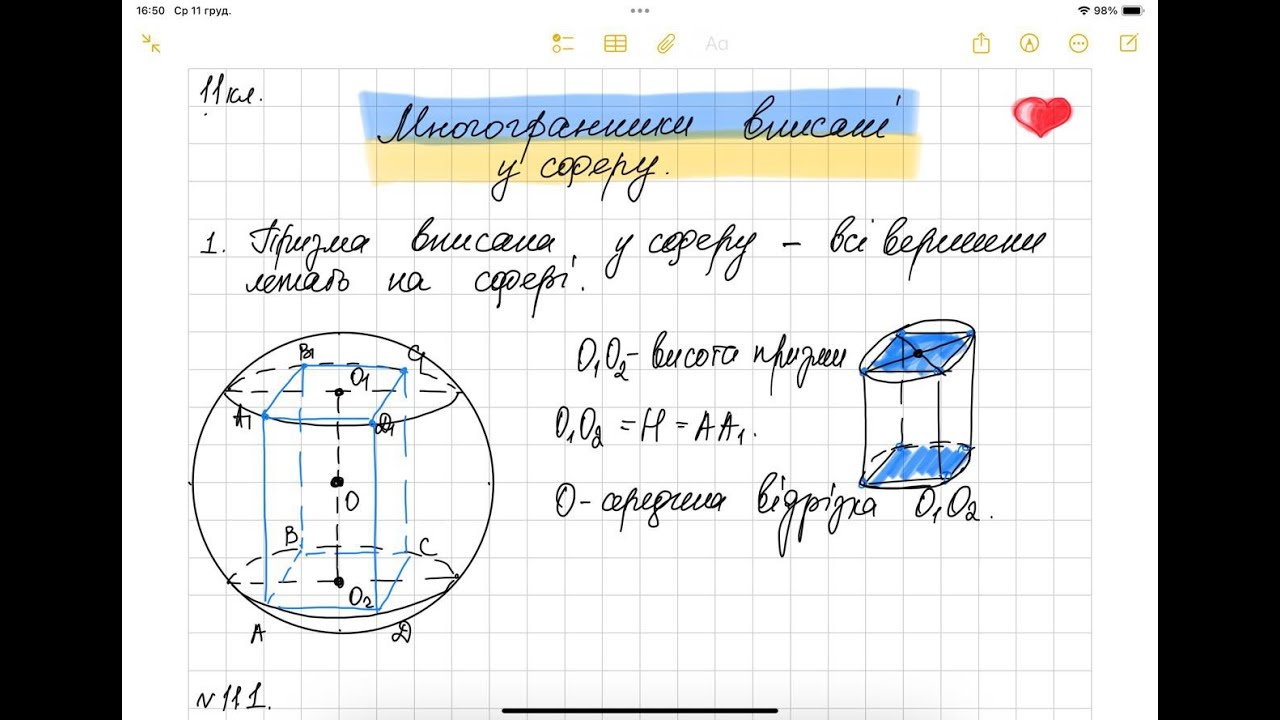 16:50 Ср 11 груд.
98%
Aa
11 кл.
Многогранники вписані
у сферу.
1. Призма вписана у сферу – всі вершини
лежать на сфері.
B1
C1
O1
A1
D1
O
B
C
O2
A
D
O1O2 – висота призми
O1O2 = H = AA1.
O – середина відрізка O1O2.
№ 11 1.